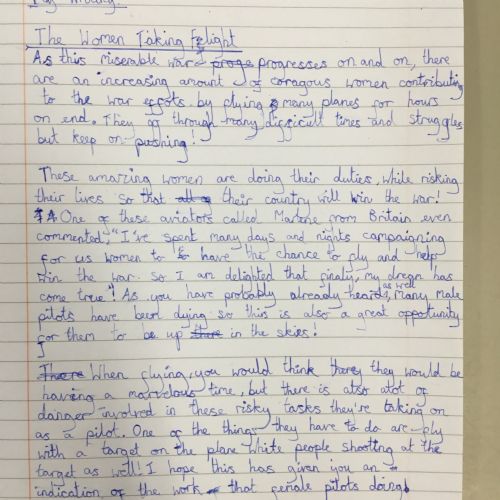 The Women Taking Flight
As this miserable war progresses on and on, there
are an increasing amount of coragous women contributing
to the war effots by flying many planes for hours
on end. They go through many difficult times and struggles
but keep on pushing!
These amazing women are doing their duties, while risking
their lives so that their country will win the war!
One of these aviators called Maxine from Britain even
commented, "I've spent many days and nights campaigning
for us women to have the chance to fly and help
win the war. So I am delighted that finaly, my dream has
come true"! As you have probably already heard, as well many male
pilots have been dying so this is also a great oppertunity
for them to be up in the skies!
When flying, you would think they would be
having a marvelous time, but there is also alot of
danger involved in these risky tasks they're taking on
as a pilot. One of the things they have to do are fly
with a target on the plane while people shooting at the
target as well! I hope this has given you an
indication of the work that female pilots doing